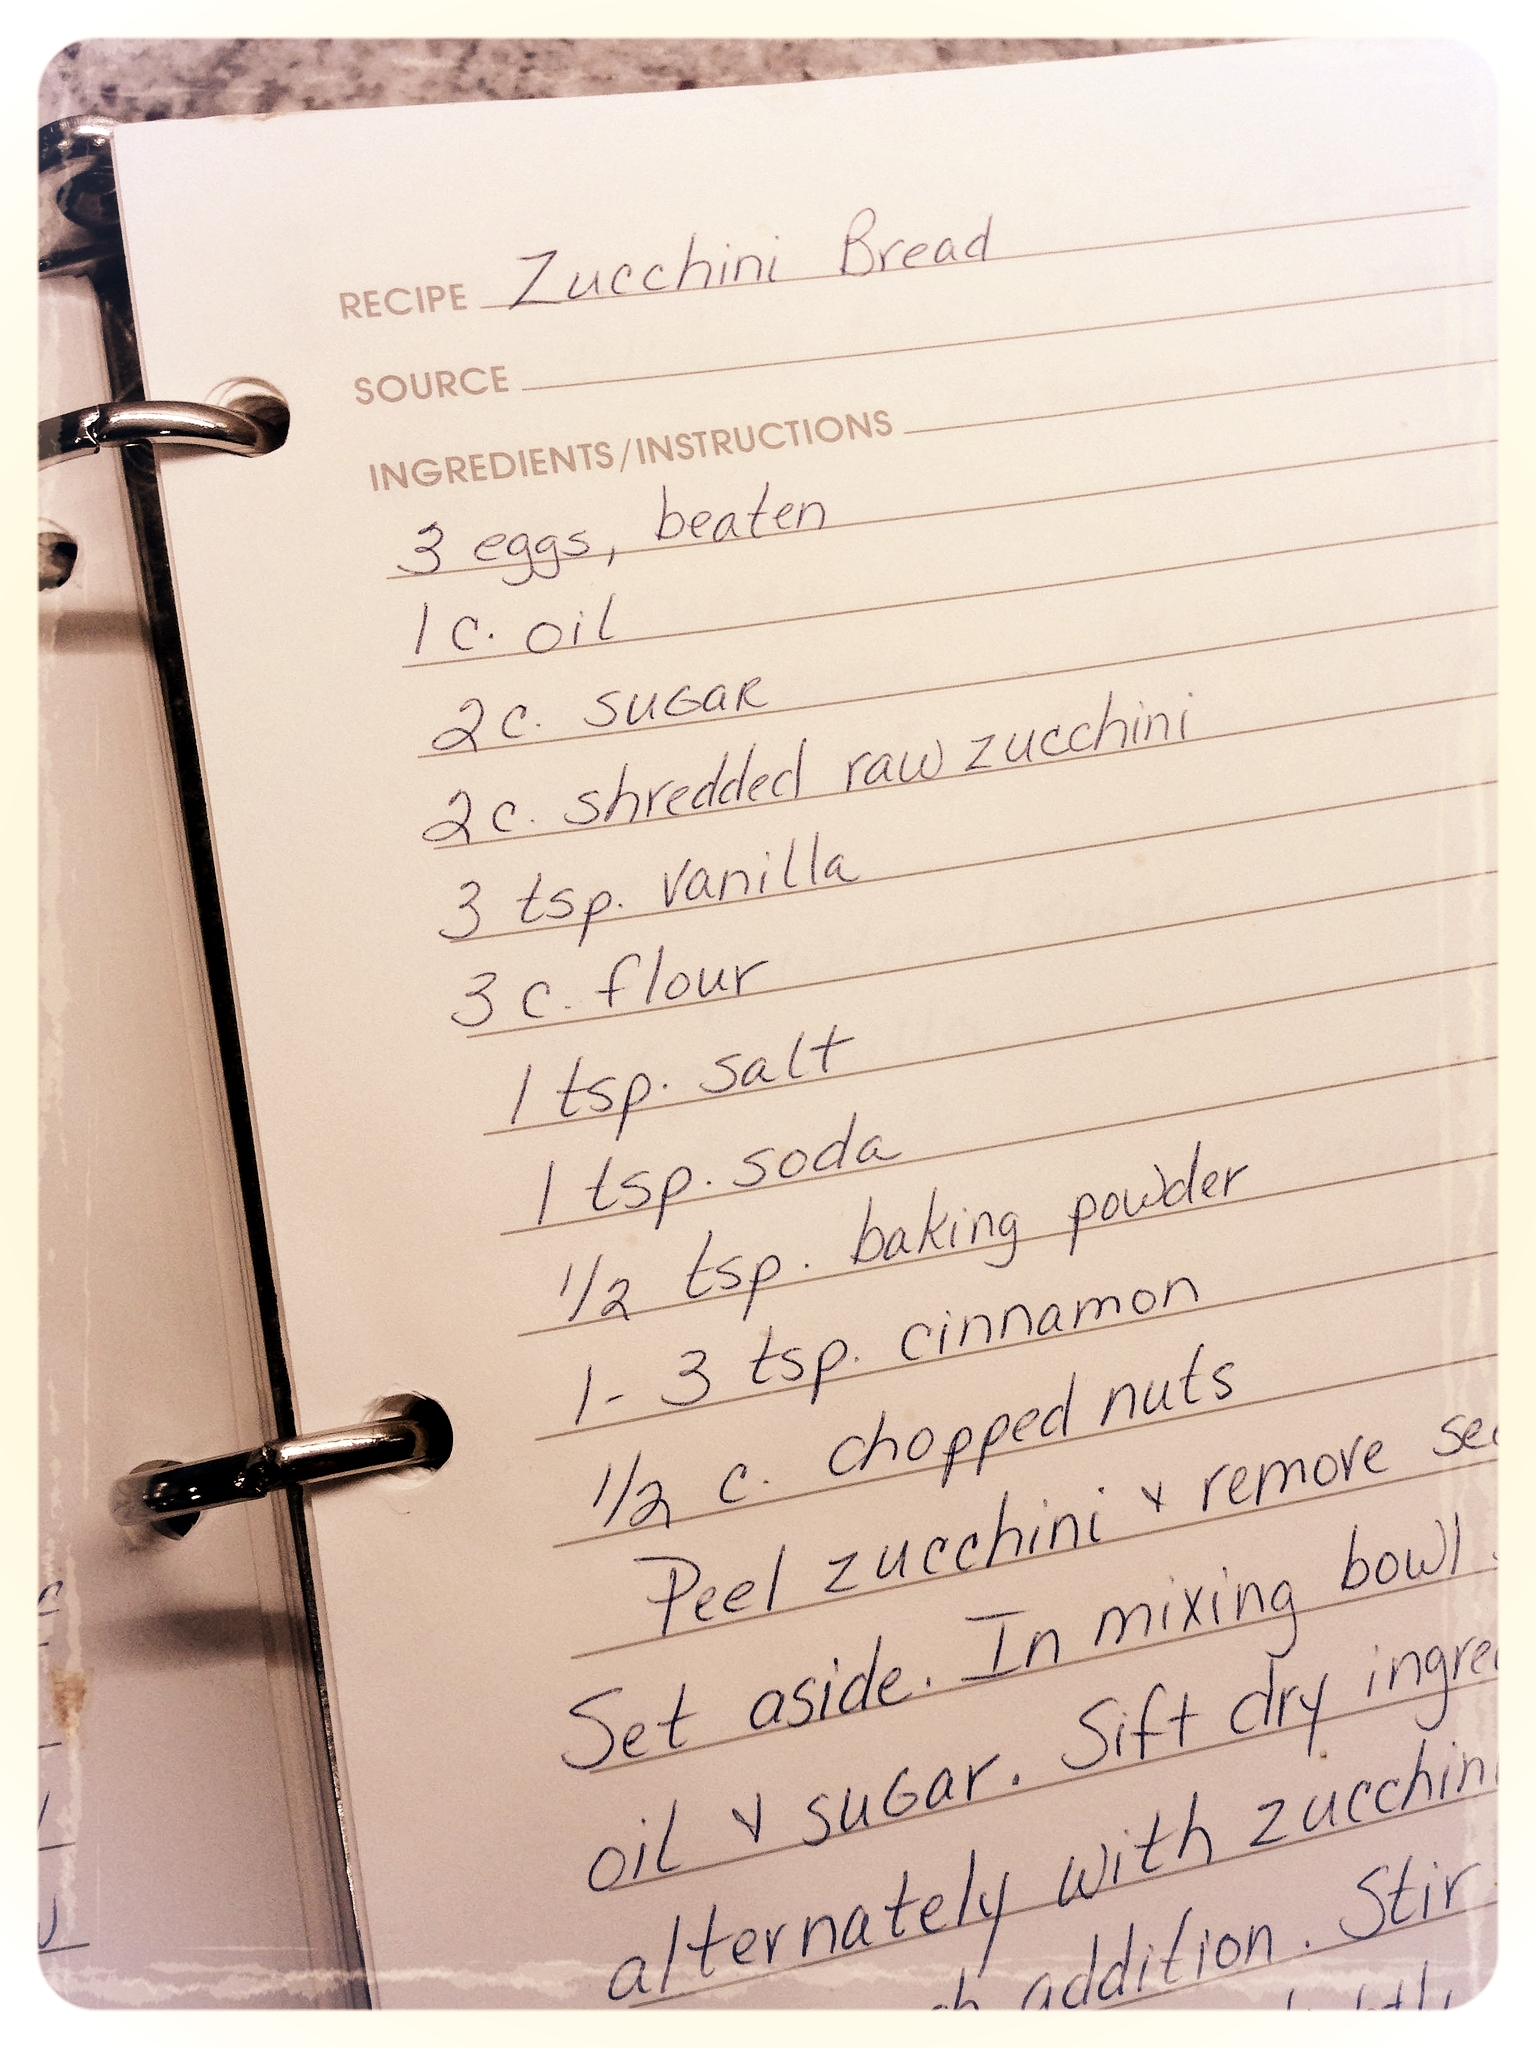 RECIPE Zucchini Bread
SOURCE
INGREDIENTS/INSTRUCTIONS
3 eggs, beaten
1 c. oil
2 c. sugar
2 c. shredded raw zucchini
3 tsp. vanilla
3 c. flour
1 tsp. salt
1 tsp. soda
1/2 tsp. baking powder
1-3 tsp. cinnamon
1/2 c. chopped nuts
Peel zucchini & remove
Set aside. In mixing bowl
oil & sugar. Sift dry
alternately with
addition. Stir